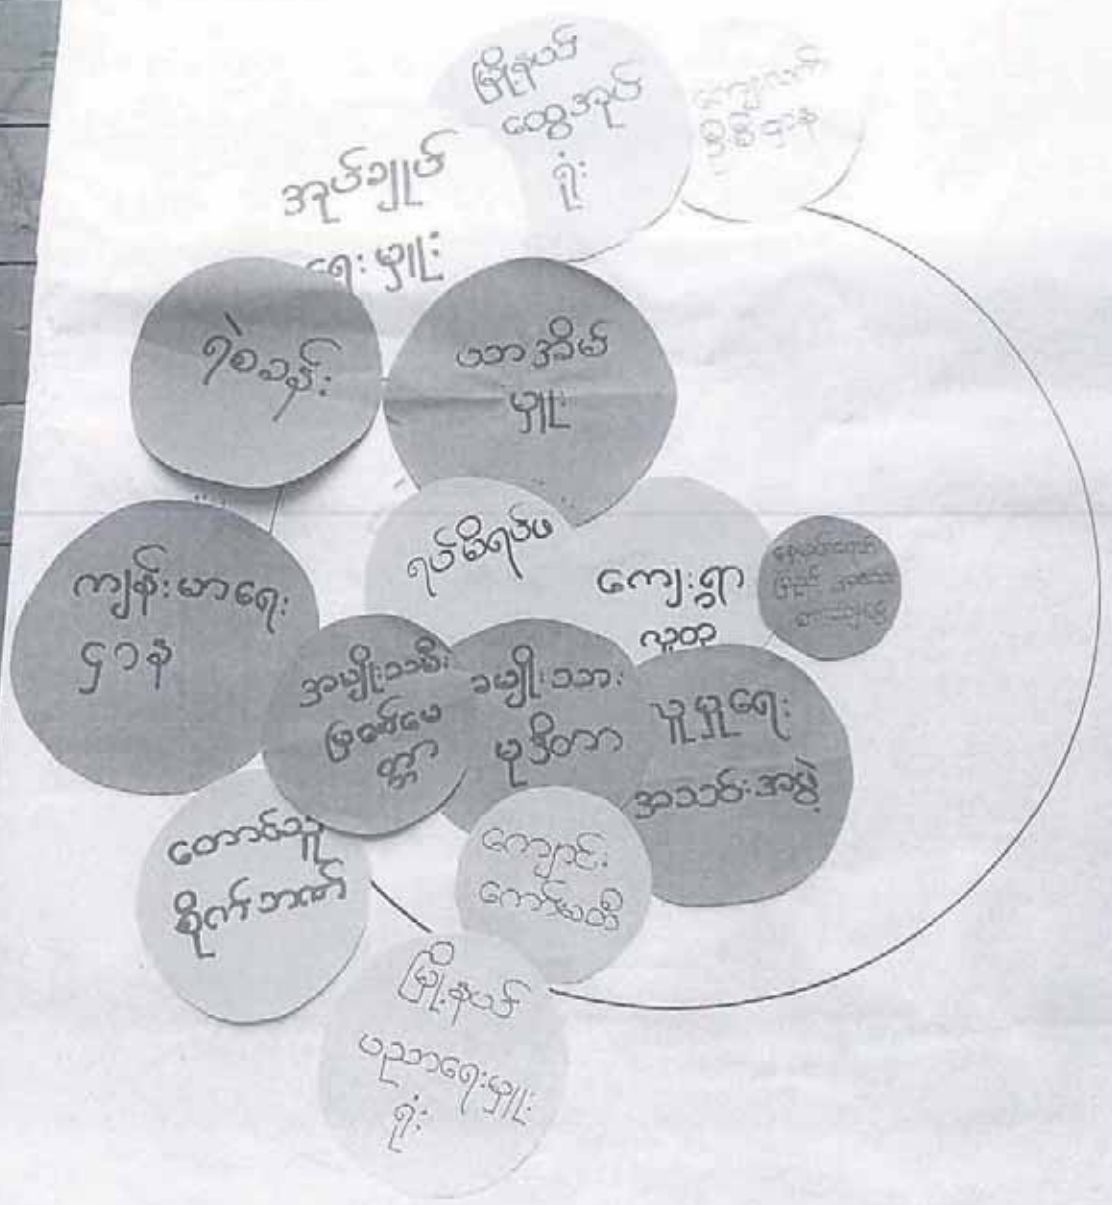 မြို့နယ်
ထွေအုပ်
ရုံး
ကျေးလက်
အုပ်ချုပ်
ရေးမှူး
ရဲစခန်း
ရာအိမ်
မှူး
ရပ်မိရပ်ဖ
ကျေးရွာ
လူထု
ကျန်းမာရေး
ဌာန
အမျိုးသမီး
မြစ်မေ
တ္တာ
ခမျိုးသား
မုဒိတာ
ယူမှုရေး
အသင်းအဖွဲ့
တောင်သူ
စိုက်ဘဏ်
ကျောင်း
ကော်မတီ
မြို့နယ်
ပညာရေးမှူး
ရုံး